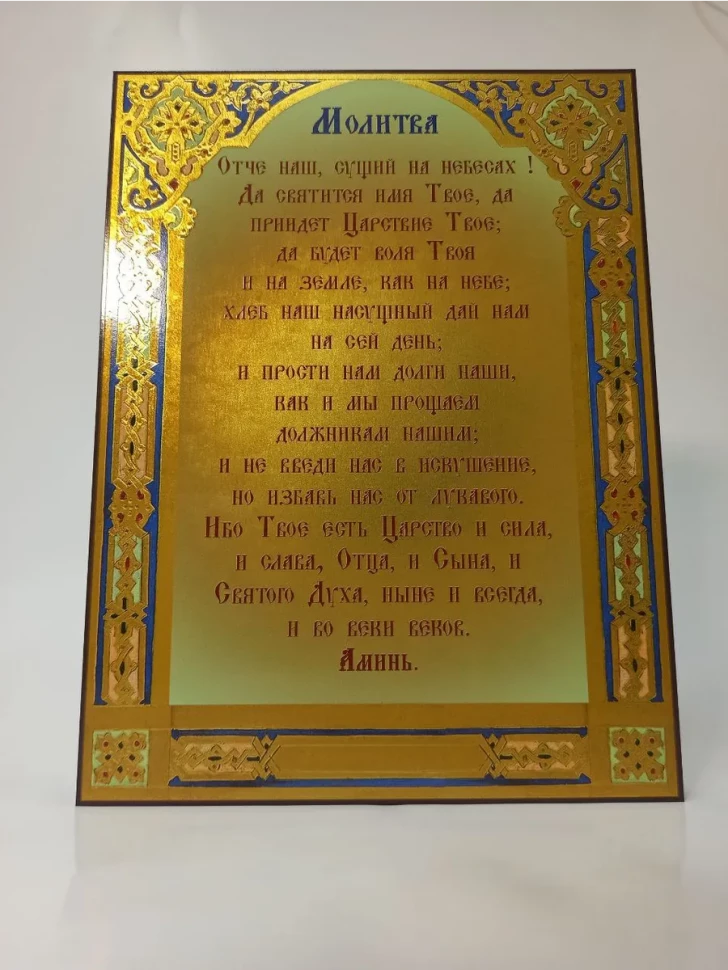 Молитва
Отче наш, сущий на небесах !
Да святится имя Твое, да
приидет Царствие Твое;
да будет воля Твоя
и на земле, как на небе;
хлеб наш насущный дай нам
на сей день;
и прости нам долги наши,
как и мы прощаем
должникам нашим;
и не введи нас в искушение,
но избавь нас от лукавого.
Ибо Твое есть Царство и сила,
и слава, Отца, и Сына, и
Святого Духа, ныне и всегда,
и во веки веков.
Аминь.